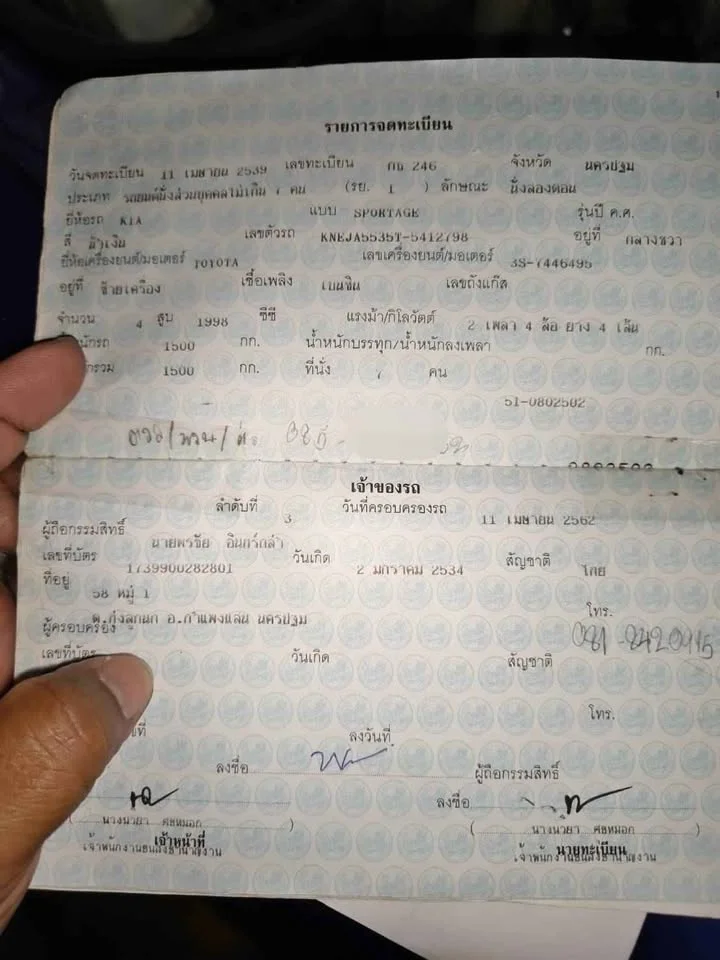 รายการจดทะเบียน
วันจดทะเบียน 11 เมษายน 2539 เลขทะเบียน กฉ 246 จังหวัด นครปฐม
ประเภท รถยนต์นั่งส่วนบุคคลไม่เกิน 7 คน (รย. 1 ) ลักษณะ นั่งสองตอน
ยี่ห้อรถ KIA แบบ SPORTAGE รุ่นปี ค.ศ.
สี น้ำเงิน เลขตัวรถ KNEJA5535T-5412798 อยู่ที่ กลางขวา
ยี่ห้อเครื่องยนต์/มอเตอร์ TOYOTA เลขเครื่องยนต์/มอเตอร์ 3S-7446495
อยู่ที่ ซ้ายเครื่อง เชื้อเพลิง เบนซิน เลขถังแก๊ส
จำนวน 4 สูบ 1998 ซีซี แรงม้า/กิโลวัตต์ 2 เพลา 4 ล้อ ยาง 4 เส้น
1500 กก. น้ำหนักบรรทุก/น้ำหนักลงเพลา กก.
1500 กก. ที่นั่ง 7 คน
51-0802502
เจ้าของรถ
ลำดับที่ 3 วันที่ครอบครองรถ 11 เมษายน 2562
ผู้ถือกรรมสิทธิ์ นายพรชัย อินทร์กล่ำ
เลขที่บัตร 1739900282801 วันเกิด 2 มกราคม 2534 สัญชาติ ไทย
ที่อยู่ 58 หมู่ 1
ต.ทุ่งลูกนก อ.กำแพงแสน นครปฐม โทร. 081-8420915
ผู้ครอบครอง -
เลขที่บัตร วันเกิด สัญชาติ
โทร.
ลงวันที่
ลงชื่อ ผู้ถือกรรมสิทธิ์
ลงชื่อ
( นางนวยา ) ( นางนวยา )
เจ้าหน้าที่ นายทะเบียน
เจ้าพนักงานขนส่งชำนาญงาน เจ้าพนักงานขนส่งชำนาญงาน